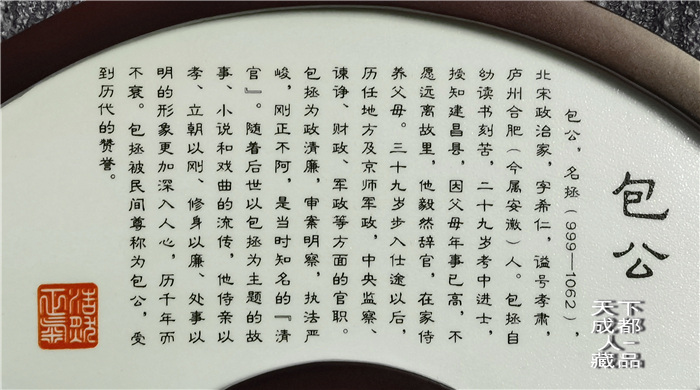 包公
包公，名拯（999—1062），
北宋政治家，字希仁，谥号孝肃，
庐州合肥（今属安徽）人。包拯自
幼读书刻苦，二十九岁考中进士，
授知建昌县，因父母年事已高，不
愿远离故里，他毅然辞官，在家侍
养父母。三十九岁步入仕途以后，
历任地方及京师军政，中央监察、
谏诤、财政、军政等方面的官职。
包拯为政清廉，审案明察，执法严
峻，刚正不阿，是当时知名的『清
官』。随着后世以包拯为主题的故
事、小说和戏曲的流传，他侍亲以
孝、立朝以刚、修身以廉、处事以
明的形象更加深入人心，历千年而
不衰。包拯被民间尊称为包公，受
到历代的赞誉。
天下
成都
人
藏品